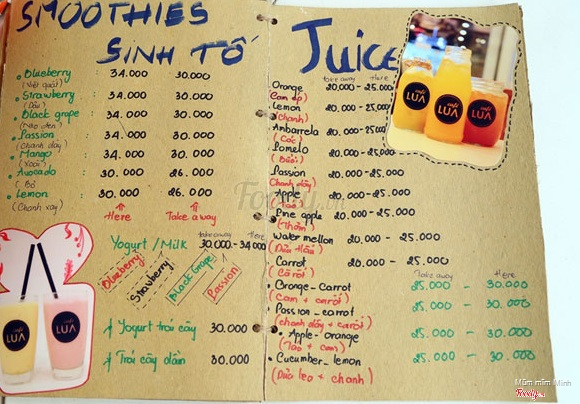 SMOOTHIES
SINH TỐ
Blueberry : 34.000 30.000
(Việt quất)
Strawberry : 34.000 30.000
(Dâu)
Black grape : 34.000 30.000
(Nho đen)
Passion : 34.000 30.000
(Chanh dây)
Mango : 34.000 30.000
(Xoài)
Avocado : 30.000 26.000
(Bơ)
Lemon : 30.000 26.000
(Chanh xay)
Here Take away
take away Here
Yogurt / Milk 30.000 - 34.000
Blueberry
Strawberry
Black Grape
Passion
Yogurt trái cây 30.000
Trái cây dầm 30.000
café
LUA
café
LUA
JUICE
take away Here
Orange 20.000 - 25.000
(Cam ép)
Lemon 20.000 - 25.000
(Chanh)
Ambarrela 20.000 - 25.000
(Cóc)
Pomelo 20.000 - 25.000
(Bưởi)
Passion 20.000 - 25.000
(Chanh dây)
Apple 20.000 - 25.000
(Táo)
Pine apple 20.000 - 25.000
(Thơm)
Water mellon 20.000 - 25.000
(Dưa Hấu)
Carrot 20.000 - 25.000
(Cà rốt)
Take away Here
Orange - carrot 25.000 - 30.000
(Cam + carốt)
Passion - carrot 25.000 - 30.000
(chanh dây + carốt)
Apple - orange 25.000 - 30.000
(Táo + cam)
Cucumber - lemon 25.000 - 30.000
(Dưa leo + chanh)
café
LUA
café
LUA
LUA
Foody.vn
Măm mỉm Minh
Foody.vn